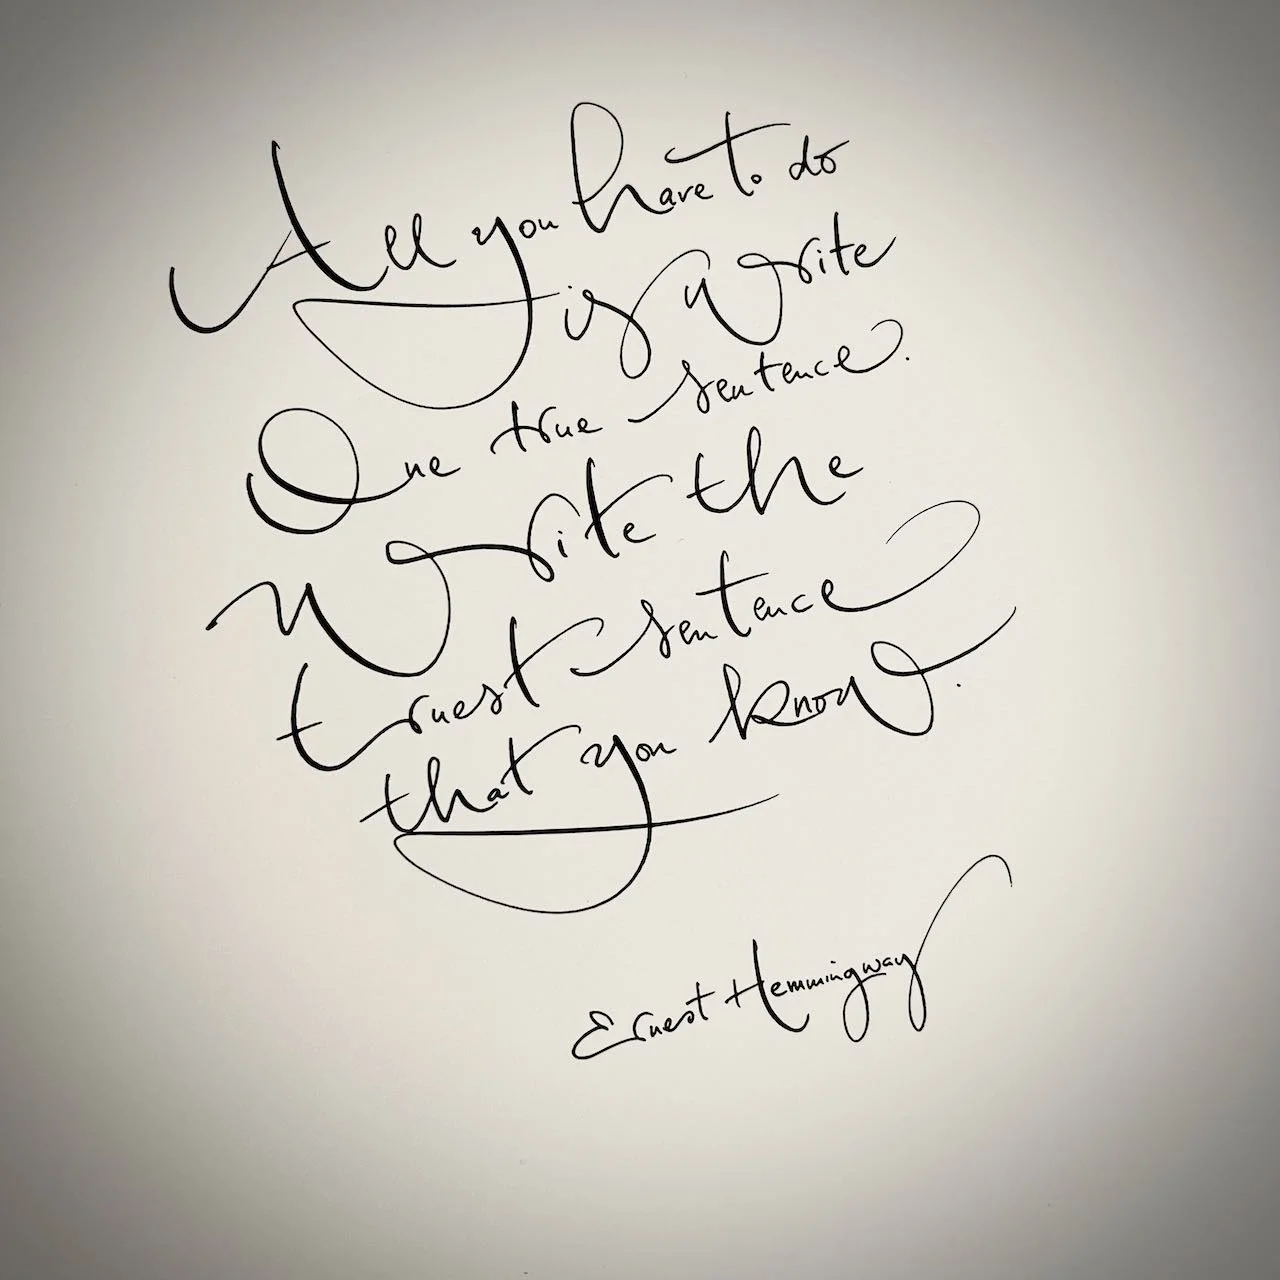 All you have to do
is write
One true sentence.
Write the
truest sentence
that you know.
Ernest Hemmingway